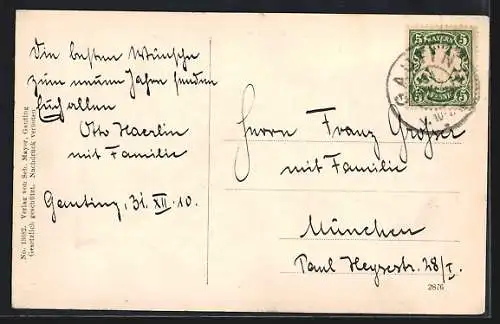 Die besten Wünsche
zum neuen Jahre senden
Euch allen
Otto Haerlin
mit Familie
Gauting, 31. XII. 10.
No. 13882. Verlag von Seb. Mayer, Gauting
Gesetzlich geschützt. Nachdruck verboten
5 BAYERN 5
5 PFENNIG 5
GAUTING
Herrn Franz Grosser
mit Familie
München
Paul Heysestr. 28/I.
2876